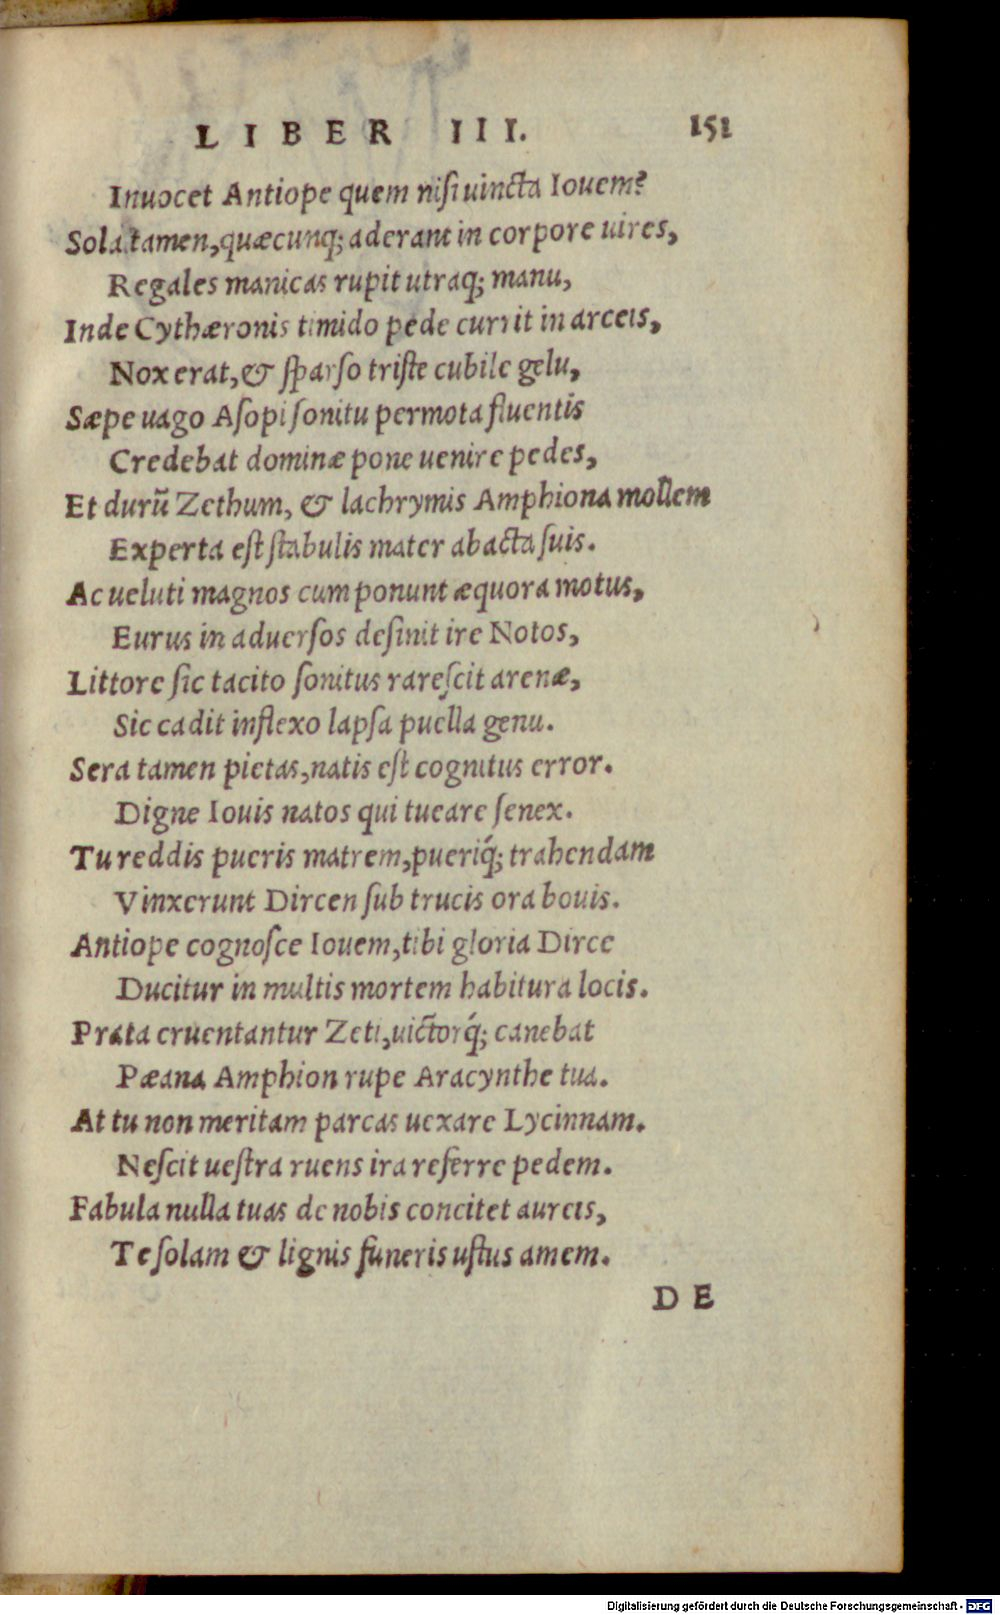 LIBER III. 151
Inuocet Antiope quem nisi uincta Iouem?
Sola tamen, quæcunq; aderant in corpore uires,
Regales manicas rupit utraq; manu,
Inde Cythæronis timido pede currit in arceis,
Nox erat, & sparso triste cubile gelu,
Sæpe uago Asopi sonitu permota fluentis
Credebat dominæ pone uenire pedes,
Et durū Zethum, & lachrymis Amphiona mollem
Experta est stabulis mater abacta suis.
Ac ueluti magnos cum ponunt æquora motus,
Eurus in aduersos desinit ire Notos,
Littore sic tacito sonitus rarescit arenæ,
Sic cadit inflexo lapsa puella genu.
Sera tamen pietas, natis est cognitus error.
Digne Iouis natos qui tueare senex.
Tu reddis pueris matrem, pueriq́; trahendam
Vinxerunt Dircen sub trucis ora bouis.
Antiope cognosce Iouem, tibi gloria Dirce
Ducitur in multis mortem habitura locis.
Prata cruentantur Zeti, uictorq́; canebat
Pæana Amphion rupe Aracynthe tua.
At tu non meritam parcas uexare Lycinnam.
Nescit uestra ruens ira referre pedem.
Fabula nulla tuas de nobis concitet aureis,
Te solam & lignis funeris ustus amem.
DE
Digitalisierung gefördert durch die Deutsche Forschungsgemeinschaft - DFG